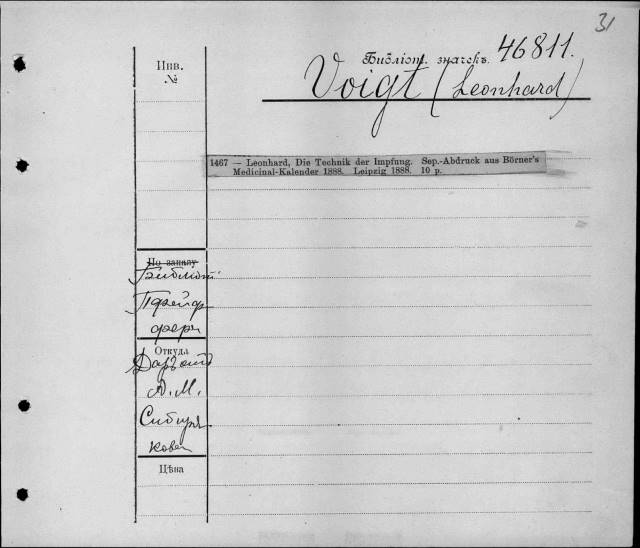 31
Библіот. значекъ. 46811.
Инв.
№
Voigt (Leonhard)
1467 — Leonhard, Die Technik der Impfung. Sep.-Abdruck aus Börner's
Medicinal-Kalender 1888. Leipzig 1888. 10 p.
По заказу
Библіот.
Пфейф
фера
Откуда
А. М.
Сибиря
кова
Цѣна